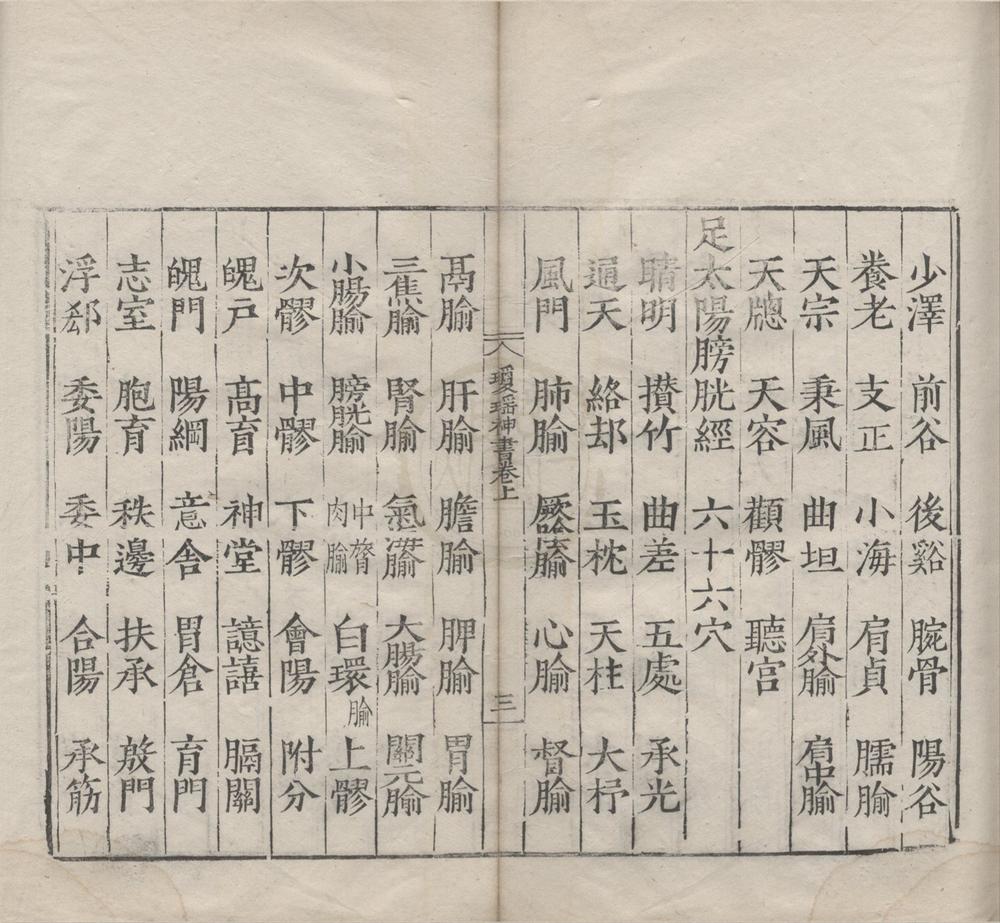 少澤 前谷 後谿 腕骨 陽谷
養老 支正 小海 肩貞 臑腧
天宗 秉風 曲垣 肩外腧 肩中腧
天牕 天容 顴髎 聽宮
足太陽膀胱經 六十六穴
睛明 攢竹 曲差 五處 承光
通天 絡却 玉枕 天柱 大杼
風門 肺腧 厥陰腧 心腧 督腧
瓊瑤神書卷上 三
膈腧 肝腧 膽腧 脾腧 胃腧
三焦腧 腎腧 氣海腧 大腸腧 關元腧
小腸腧 膀胱腧 中膂肉腧 白環腧 上髎
次髎 中髎 下髎 會陽 附分
魄戶 膏肓 神堂 譩譆 膈關
魄門 陽綱 意舍 胃倉 肓門
志室 胞肓 秩邊 扶承 殷門
浮郄 委陽 委中 合陽 承筋